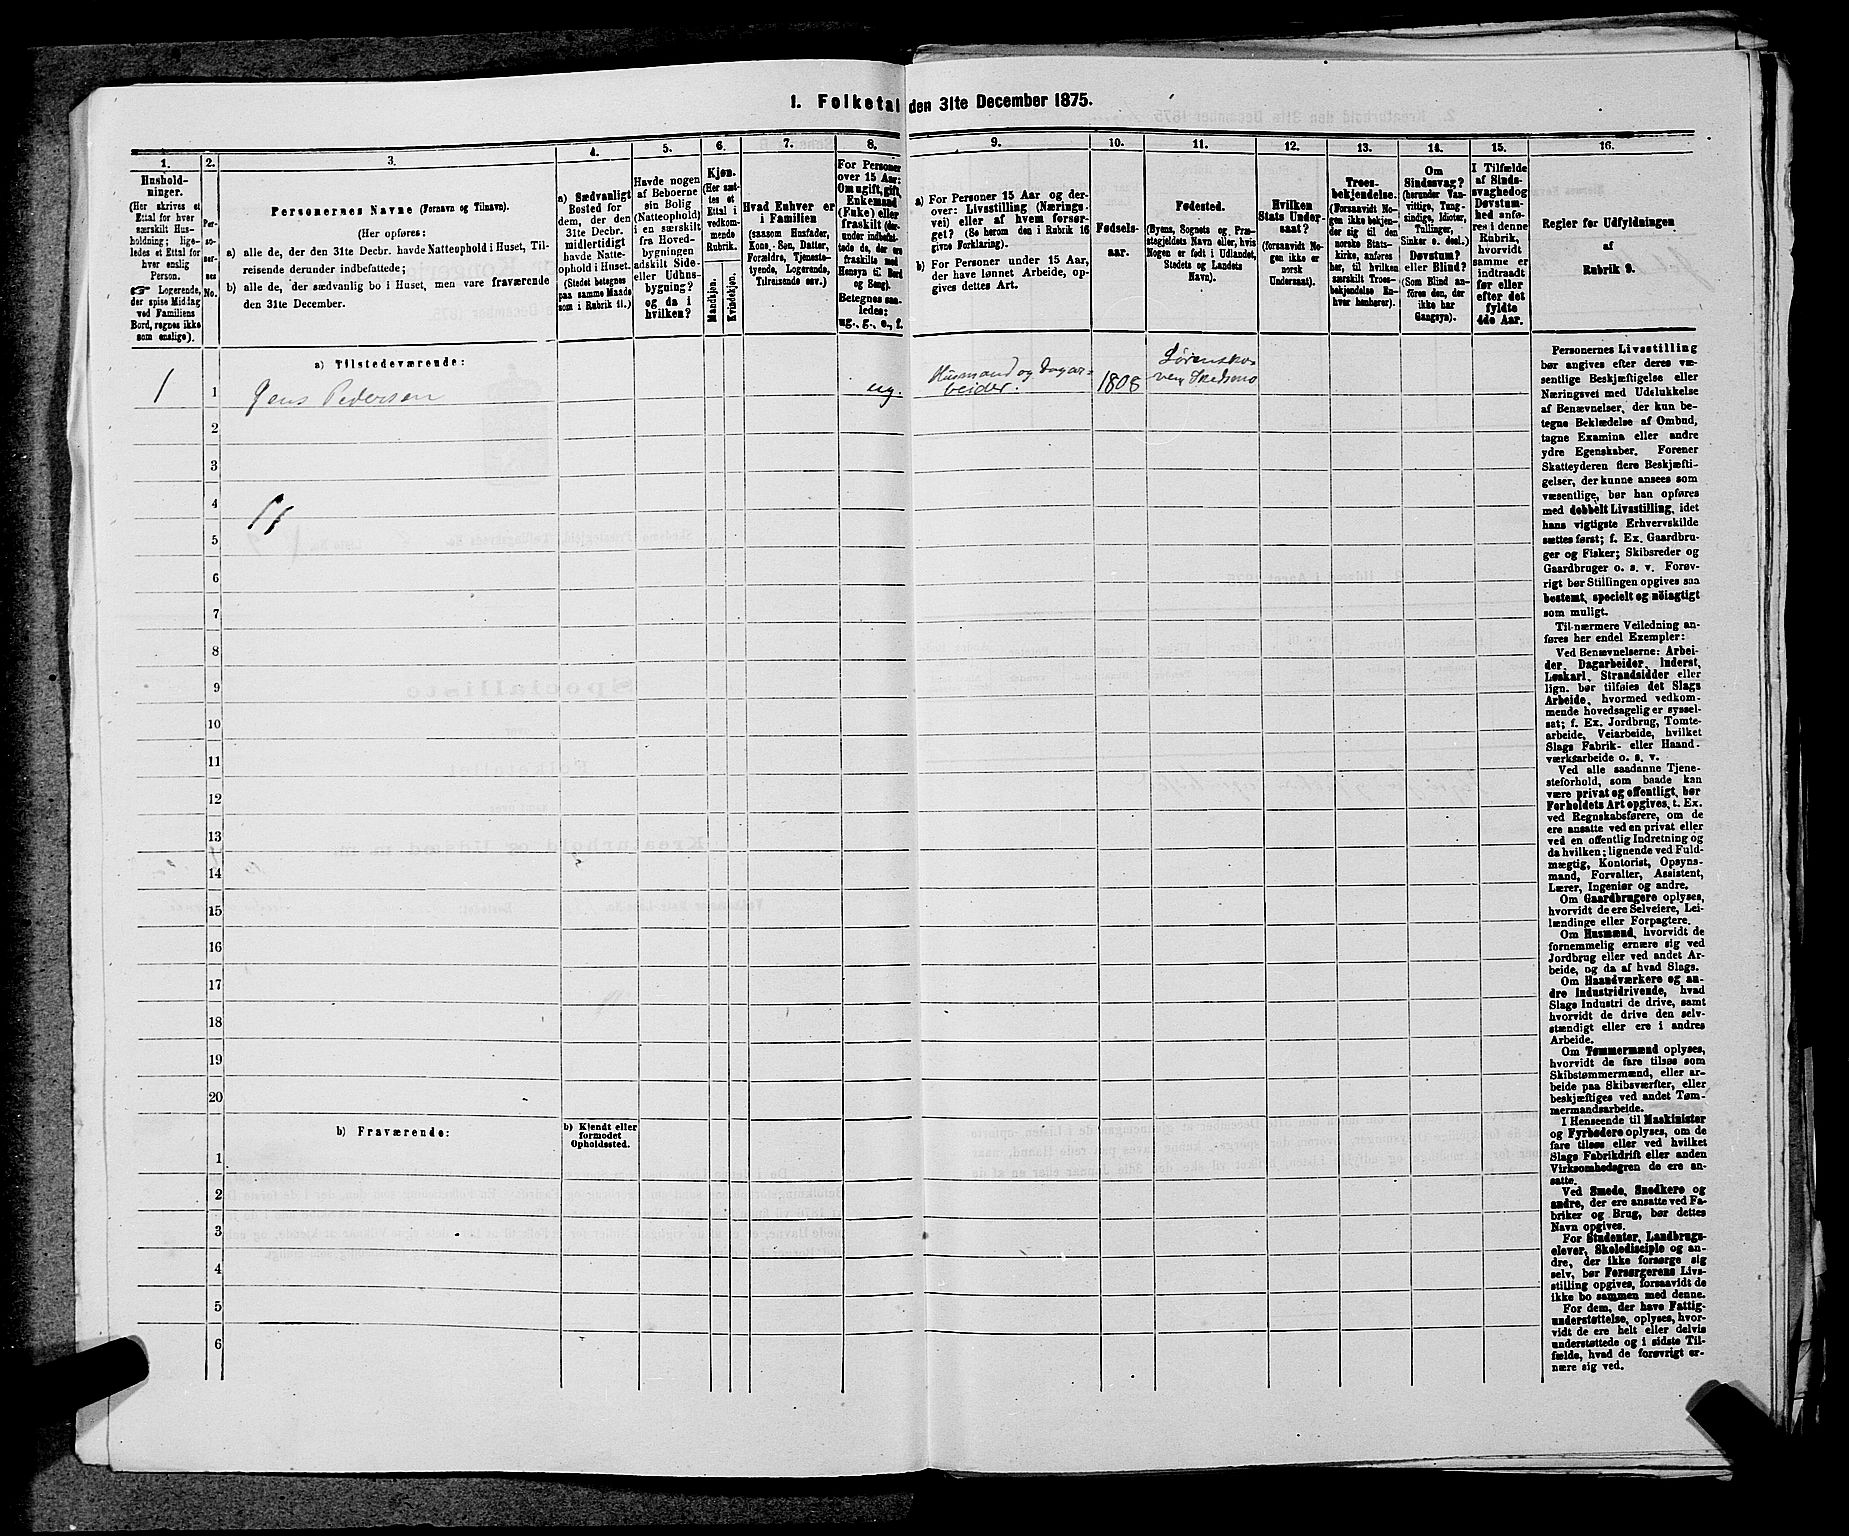 1. Folketal den 31te December 1875.
1.
Hushold-
ninger.
(Her skrives et
Ettal for hver
særskilt Hus-
holdning; lige-
ledes et Ettal for
hver enslig
Person.
☞ Logerende,
der spise Middag
ved Familiens
Bord, regnes ikke
som enslige).
2.
Per-
so-
ner-
nes
No.
3.
Personernes Navne (Fornavn og Tilnavn).
(Her opføres:
a) alle de, der den 31te Decbr. havde Natteophold i Huset, Til-
reisende derunder indbefattede;
b) alle de, der sædvanlig bo i Huset, men vare fraværende
den 31te December.
4.
a) Sædvanligt
Bosted for
dem, der den
31te Decbr.
midlertidigt
havde Natte-
ophold i Huset.
(Stedet betegnes
paa samme Maade
som i Rubrik 11.)
5.
Havde nogen
af Beboerne
sin Bolig
(Natteophold)
i en særskilt
fra Hoved-
bygningen
adskilt Side-
eller Udhus-
bygning?
og da i
hvilken?
6.
Kjøn.
(Her sæt-
tes et
Ettal i
vedkom-
mende
Rubrik.
Mandkjøn.
Kvindekjøn.
7.
Hvad Enhver er
i Familien
(saasom Husfader,
Kone, Søn, Datter,
Forældre, Tjeneste-
tyende, Logerende,
Tilreisende osv.)
8.
For Personer
over 15 Aar:
Om ugift, gift,
Enkemand
(Enke) eller
fraskilt (der-
under indbefat-
tede de, der ere
fraskilte med
Hensyn til Bord
og Seng).
Betegnes saa-
ledes:
ug., g., e., f.
9.
a) For Personer 15 Aar og der-
over: Livsstilling (Nærings-
vei) eller af hvem forsør-
get? (Se herom den i Rubrik 16
givne Forklaring).
b) For Personer under 15 Aar,
der have lønnet Arbeide, op-
gives dettes Art.
10.
Fødsels-
aar.
11.
Fødested.
(Byens, Sognets og Præ-
stegjeldets Navn eller, hvis
Nogen er født i Udlandet,
Stedets og Landets
Navn).
12.
Hvilken
Stats Under-
saat?
(forsaavidt No-
gen ikke er
norsk
Undersaat).
13.
Troes-
bekjendelse.
(Forsaavidt No-
gen ikke bekjen-
der sig til den
norske Stats-
kirke, anføres
her, til hvilken
Troes-
bekjendelse En-
hver henhører).
14.
Om
Sindssvag?
(herunder Van-
vittige, Tung-
sindige, Idioter,
Tullinger,
Sinker o. desl.)
Døvstum?
eller Blind?
(Som Blind an-
føres den, der
ikke har
Gangsyn).
15.
I Tilfælde
af Sinds-
svaghed og
Døvstum-
hed anfø-
res i denne
Rubrik,
hvorvidt
samme er
indtraadt
før eller
efter det
fyldte
4de Aar.
16.
Regler for Udfyldningen
af
Rubrik 9.
a) Tilstedeværende:
1 1 Jens Pedersen ug. Husmand og Dagar-
beider. 1808 Lørensko-
ven Skedsmo
2
3
4
5
6
7
8
9
10
11
12
13
14
15
16
17
18
19
20
b) Fraværende:
b) Kjendt eller
formodet
Opholdssted.
1
2
3
4
5
6
Personernes Livsstilling
bør angives efter deres væ-
sentlige Beskjæftigelse eller
Næringsvei med Udelukkelse
af Benævnelser, der kun be-
tegne Beklædelse af Ombud,
tagne Examina eller andre
ydre Egenskaber. Forener
Skatteyderen flere Beskjæfti-
gelser, der kunne ansees som
væsentlige, bør han opføres
med dobbelt Livsstilling, idet
hans vigtigste Erhvervskilde
sættes først; f. Ex. Gaardbru-
ger og Fisker; Skibsreder og
Gaardbruger o. s. v. Forøv-
rigt bør Stillingen opgives saa
bestemt, specielt og nöiagtigt
som muligt.
Til nærmere Veiledning an-
føres her endel Exempler:
Ved Benævnelserne: Arbei-
der, Dagarbeider, Inderst,
Løskarl, Strandsidder eller
lign. bør tilføies det Slags
Arbeide, hvormed vedkom-
mende hovedsagelig er syssel-
sat; f. Ex. Jordbrug, Tomte-
arbeide, Veiarbeide, hvilket
Slags Fabrik- eller Haand-
værksarbeide o. s. v.
Ved alle saadanne Tjene-
steforhold, som baade kan
være privat og offentligt, bør
Forholdets Art opgives, t. Ex.
ved Regnskabsførere, om de
ere ansatte ved en privat eller
ved en offentlig Indretning og
da hvilken; lignende ved Fuld-
mægtig, Kontorist, Opsyns-
mand, Forvalter, Assistent,
Lærer, Ingeniør og andre.
Om Gaardbrugere oplyses,
hvorvidt de ere Selveiere, Lei-
lændinge eller Forpagtere.
Om Husmænd, hvorvidt de
fornemmelig ernære sig ved
Jordbrug eller ved andet Ar-
beide, og da af hvad Slags.
Om Haandværkere og an-
dre industridrivende, hvad
Slags Industri de drive, samt
hvorvidt de drive den selv-
stændigt eller ere i andres
Arbeide.
Om Tømmermænd oplyses,
hvorvidt de fare tilsøs som
Skibstømmermænd, eller ar-
beide paa Skibsværfter, eller
beskjæftiges ved andet Tøm-
mermandsarbeide.
I Henseende til Maskinister
og Fyrbødere oplyses, om de
fare tilsøs eller ved hvilket
Slags Fabrikdrift eller anden
Virksomhedsgren de ere an-
satte.
Ved Smede, Snedkere og
andre, der ere ansatte ved Fa-
briker og Brug, bør dettes
Navn opgives.
For Studenter, Landbrugs-
elever, Skoledisciple og an-
dre, der ikke forsørge sig
selv, bør Forsørgerens Livs-
stilling opgives, forsaavidt de
ikke bo sammen med denne.
For dem, der have Fattig-
understøttelse, oplyses, hvor-
vidt de ere helt eller delvis
understøttede og i sidste Til-
fælde, hvad de forøvrigt er-
nære sig ved.